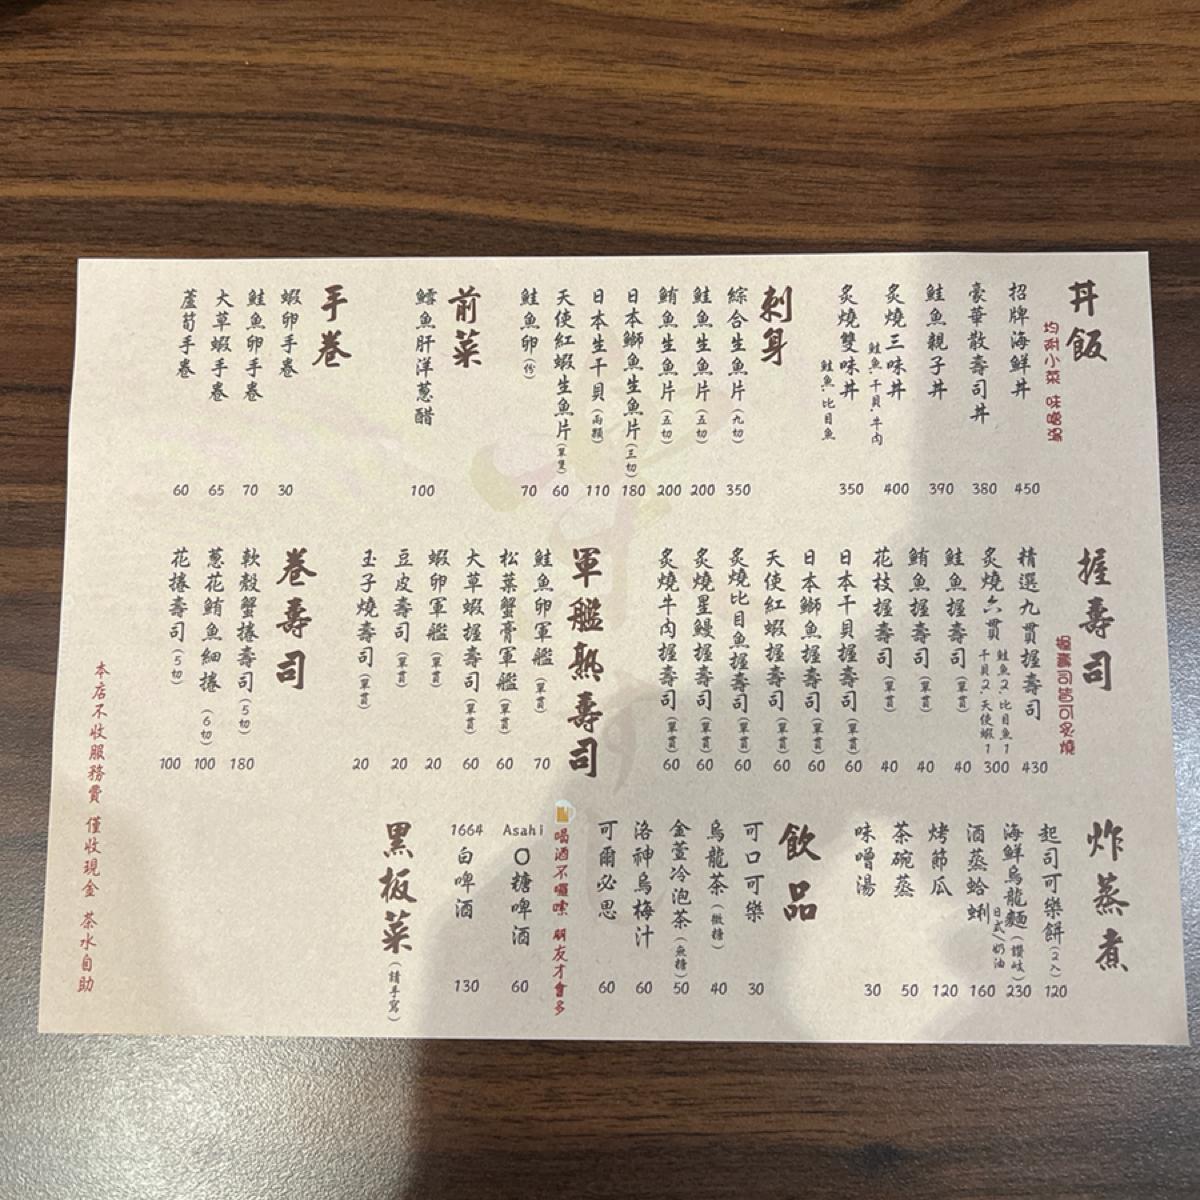 丼飯
均附小菜 味噌湯
招牌海鮮丼 450
豪華散壽司丼 380
鮭魚親子丼 390
炙燒三味丼 400
鮭魚、干貝、牛肉
炙燒雙味丼 350
鮭魚、比目魚
刺身
綜合生魚片(九切) 350
鮭魚生魚片(五切) 200
鮪魚生魚片(五切) 200
日本鰤魚生魚片(三切) 180
日本生干貝(兩顆) 110
天使紅蝦生魚片(單隻) 60
鮭魚卵(份) 70
前菜
鱈魚肝洋蔥醋 100
手卷
蝦卵手卷 30
鮭魚卵手卷 70
大草蝦手卷 65
蘆筍手卷 60
握壽司
握壽司皆可炙燒
精選九貫握壽司 430
炙燒六貫 300
鮭魚2、比目魚1
干貝2、天使蝦1
鮭魚握壽司(單貫) 40
鮪魚握壽司(單貫) 40
花枝握壽司(單貫) 40
日本干貝握壽司(單貫) 60
日本鰤魚握壽司(單貫) 60
天使紅蝦握壽司(單貫) 60
炙燒比目魚握壽司(單貫) 60
炙燒星鰻握壽司(單貫) 60
炙燒牛肉握壽司(單貫) 60
軍艦熟壽司
鮭魚卵軍艦(單貫) 70
松葉蟹膏軍艦(單貫) 60
大草蝦握壽司(單貫) 60
蝦卵軍艦(單貫) 20
豆皮壽司(單貫) 20
玉子燒壽司(單貫) 20
卷壽司
軟殼蟹捲壽司(5切) 180
蔥花鮪魚細捲(6切) 100
花捲壽司(5切) 100
炸蒸煮
起司可樂餅(2入) 120
海鮮烏龍麵(讚岐) 230
日式/奶油
酒蒸蛤蜊 160
烤節瓜 120
茶碗蒸 50
味噌湯 30
飲品
可口可樂 30
烏龍茶(微糖) 40
金萱冷泡茶(無糖) 50
洛神烏梅汁 60
可爾必思 60
喝酒不囉嗦 朋友才會多
Asahi
0糖啤酒 60
1664
白啤酒 130
黑板菜(請手寫)
本店不收服務費 僅收現金 茶水自助